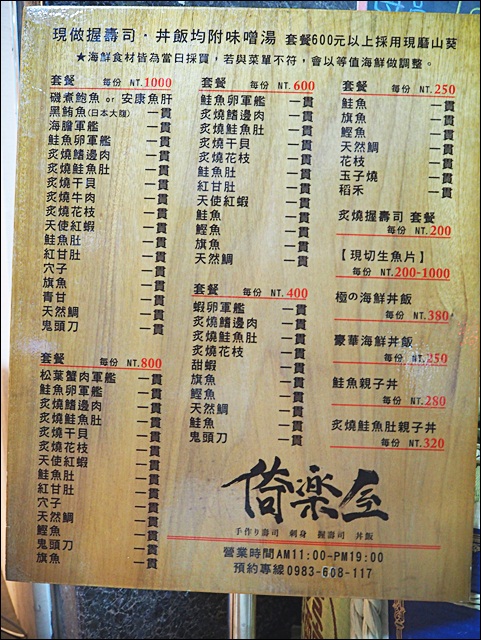 現做握壽司・丼飯均附味噌湯 套餐600元以上採用現磨山葵
★海鮮食材皆為當日採買，若與菜單不符，會以等值海鮮做調整。
套餐 每份 NT.1000
磯煮鮑魚 or 安康魚肝
黑鮪魚(日本大腹) 一貫
海膽軍艦 一貫
鮭魚卵軍艦 一貫
炙燒鰭邊肉 一貫
炙燒鮭魚肚 一貫
炙燒干貝 一貫
炙燒牛肉 一貫
炙燒花枝 一貫
天使紅蝦 一貫
鮭魚肚 一貫
紅甘肚 一貫
穴子 一貫
旗魚 一貫
青甘 一貫
天然鯛 一貫
鬼頭刀 一貫
套餐 每份 NT.800
松葉蟹肉軍艦 一貫
鮭魚卵軍艦 一貫
炙燒鰭邊肉 一貫
炙燒鮭魚肚 一貫
炙燒干貝 一貫
炙燒花枝 一貫
天使紅蝦 一貫
鮭魚肚 一貫
紅甘肚 一貫
穴子 一貫
天然鯛 一貫
鰹魚 一貫
鬼頭刀 一貫
旗魚 一貫
套餐 每份 NT.600
鮭魚卵軍艦 一貫
炙燒鰭邊肉 一貫
炙燒鮭魚肚 一貫
炙燒干貝 一貫
炙燒花枝 一貫
鮭魚肚 一貫
紅甘肚 一貫
天使紅蝦 一貫
鮭魚 一貫
鰹魚 一貫
旗魚 一貫
天然鯛 一貫
套餐 每份 NT.400
蝦卵軍艦 一貫
炙燒鰭邊肉 一貫
炙燒鮭魚肚 一貫
炙燒花枝 一貫
甜蝦 一貫
旗魚 一貫
鰹魚 一貫
天然鯛 一貫
鮭魚 一貫
鬼頭刀 一貫
套餐 每份 NT.250
鮭魚 一貫
旗魚 一貫
鰹魚 一貫
天然鯛 一貫
花枝 一貫
玉子燒 一貫
稻禾 一貫
炙燒握壽司 套餐
每份 NT.200
【現切生魚片】
NT.200-1000
極の海鮮丼飯
每份 NT.380
豪華海鮮丼飯
每份 NT.250
鮭魚親子丼
每份 NT.280
炙燒鮭魚肚親子丼
每份 NT.320
倚楽屋
手作り壽司 刺身 握壽司 丼飯
營業時間AM11:00~PM19:00
預約專線0983-608-117